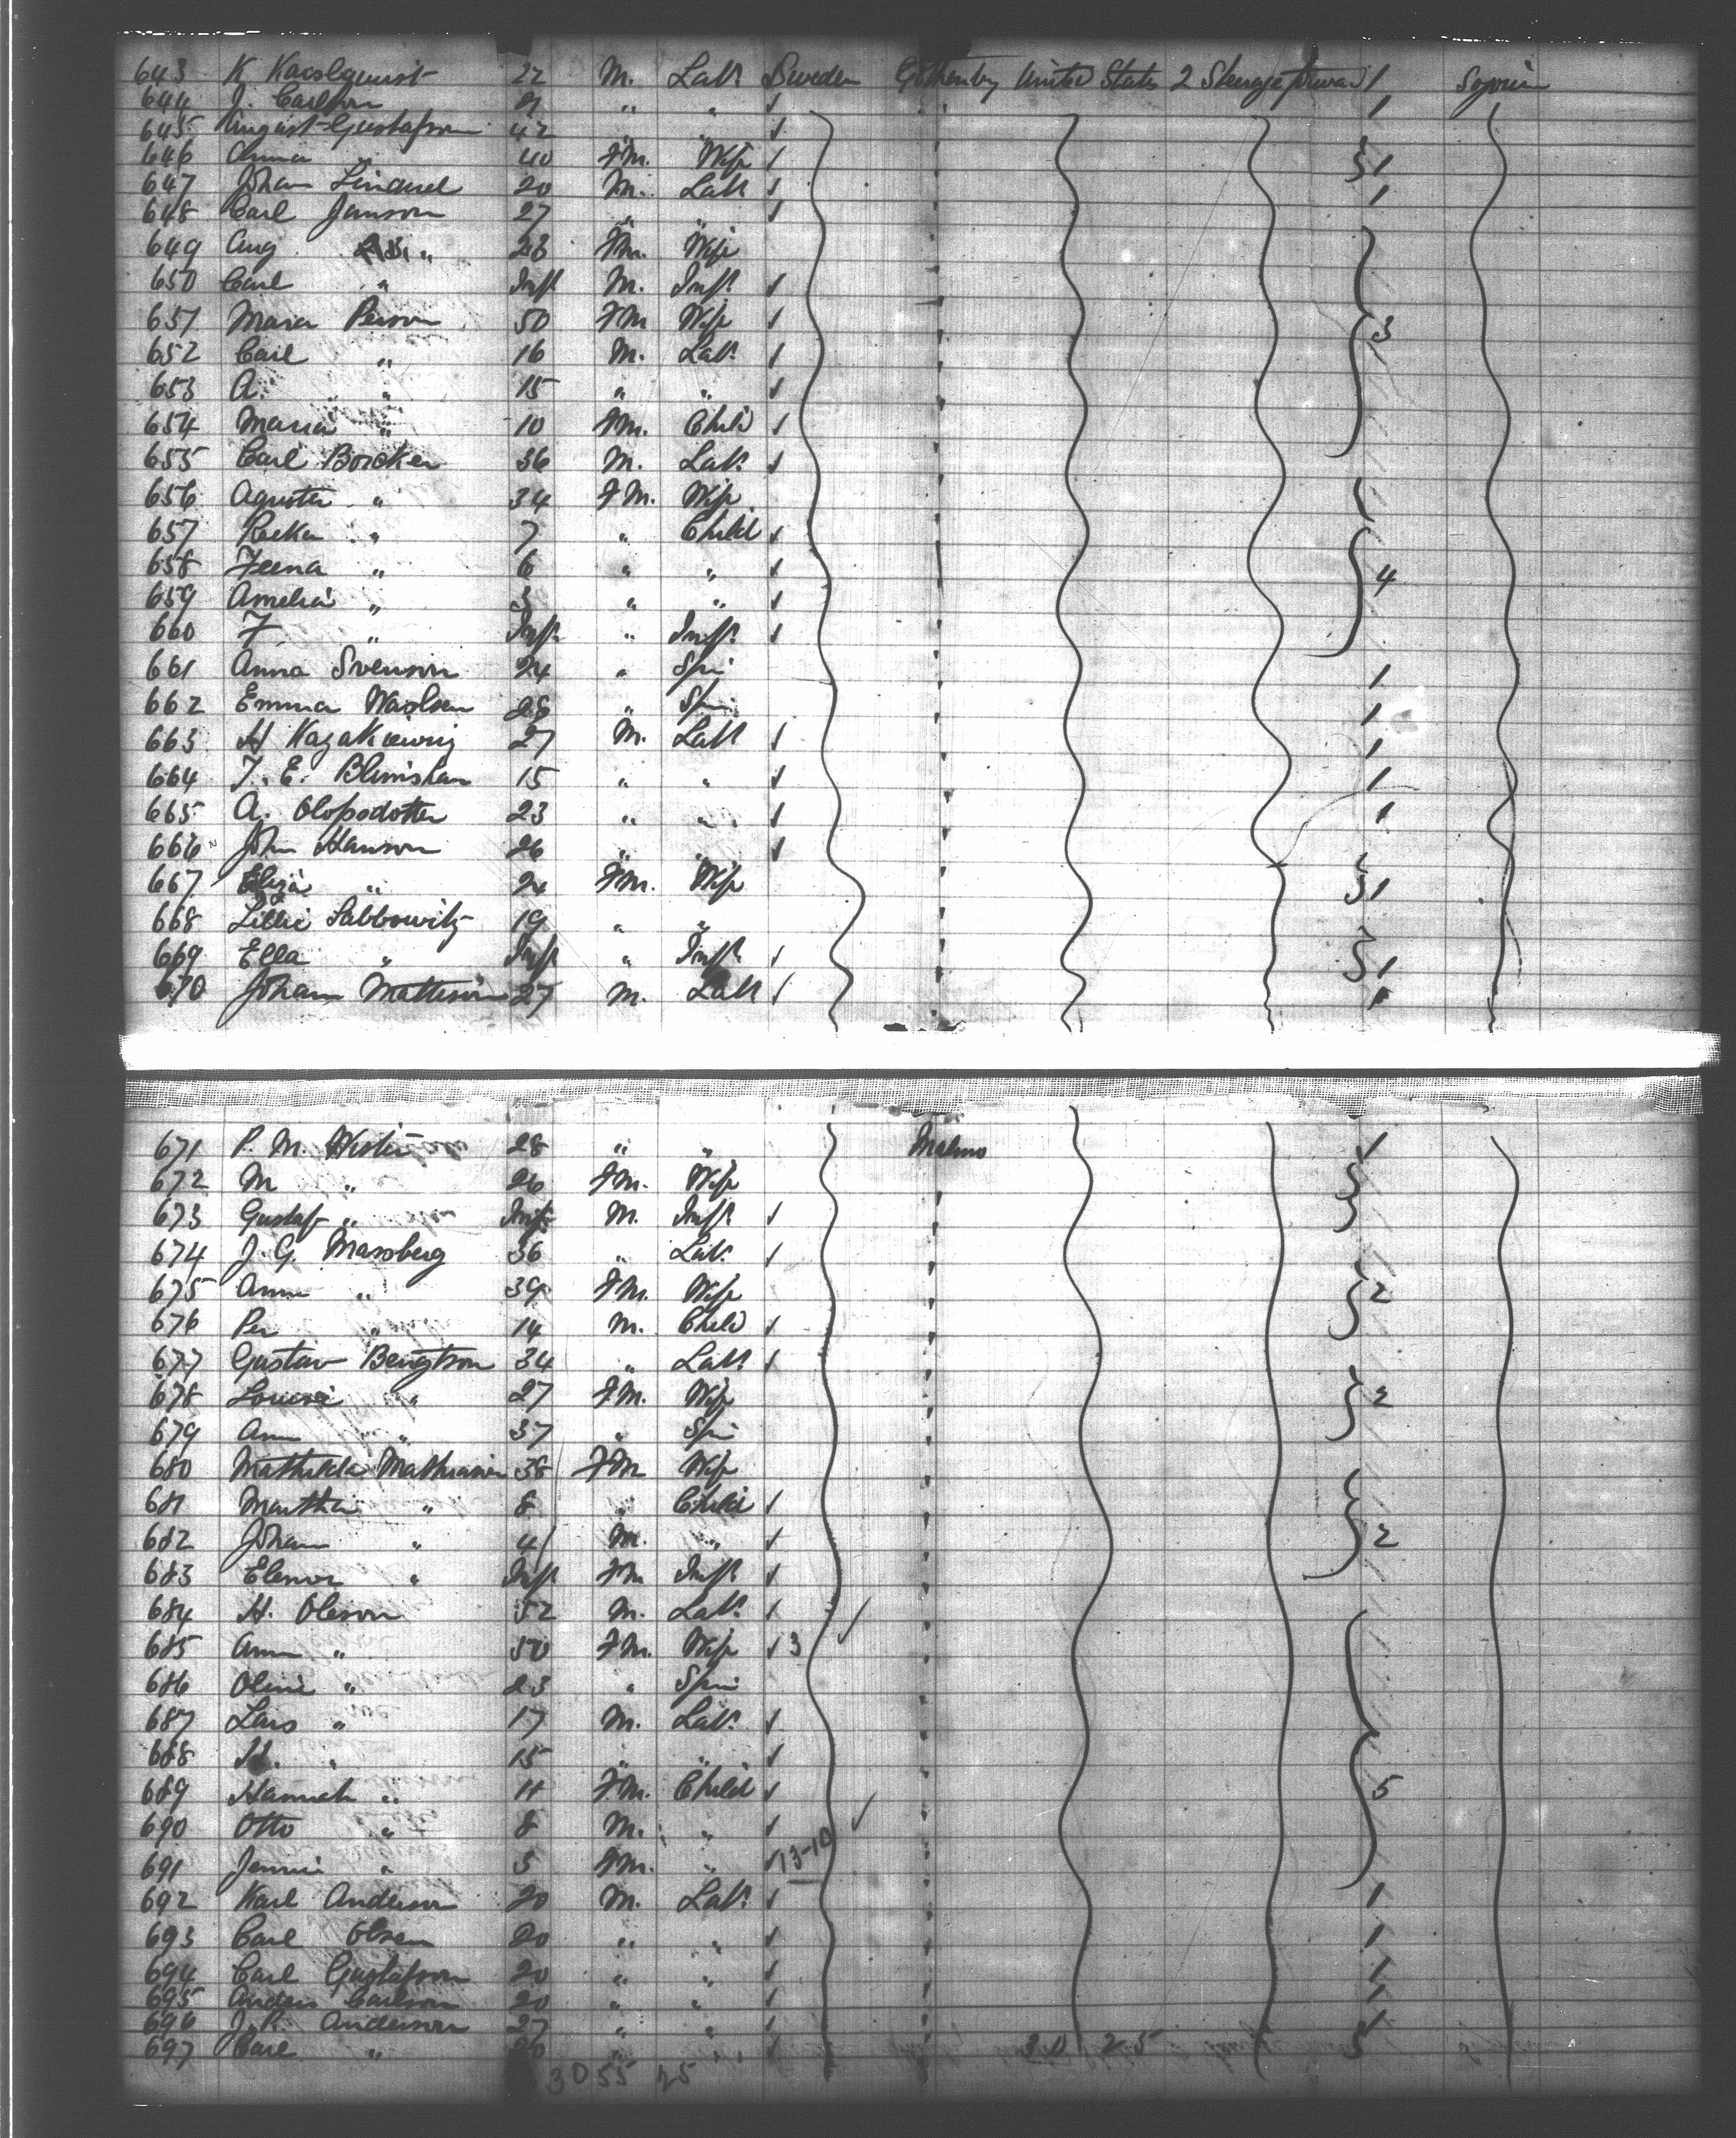 643 K Karlquist 22 M. Labr Sweden Gothenburg United States 2 Steerage forward 1 Sojourn
644 J. Carlson 21 " " 1
645 August Gustafson 42 " "
646 Anna " 40 FM. Wife 1
647 Johan 20 M. Labr 1
648 Carl Janson 27 " "
649 Aug " 23 FM. Wife
650 Carl " Inft M. Inft
651 Maria Person 50 FM Wife 3
652 Carl " 16 M. Labr
653 A. " 15 " "
654 Maria " 10 FM. Child
655 Carl Borcker 36 M. Labr
656 Agusta " 34 FM. Wife
657 " 7 " Child
658 Feena " 6 " " 4
659 Amelia " 3 " "
660 F " Inft " Inft
661 Anna Svenson 24 " Spin 1
662 Emma 28 " Spin 1
663 H 27 M. Labr 1
664 15 " " 1
665 A. Olofsdotter 23 " " 1
666 John Hanson 26 " "
667 Eliza " 24 FM. Wife 1
668 Lillie Sabbowitz 19 " "
669 Ella " Inft " Inft 1
670 Johan Matteson 27 M. Labr 1
671 P. M. 28 " " Malmo 1
672 M " 26 FM. Wife
673 Gustaf " Inft M. Inft
674 J. G. Massberg 36 " Labr
675 Ann " 39 FM. Wife 2
676 Per " 14 M. Child
677 Gustav Bengtson 34 " Labr
678 Louisa " 27 FM. Wife 2
679 Ann " 37 " Spin
680 Mathilda Mathiason 38 FM Wife
681 Martha " 8 " Child
682 Johan " 4 M. " 2
683 Elenor " Inft FM Inft
684 H. Oleson 52 M. Labr
685 Ann " 50 FM. Wife 3
686 Oline " 23 " Spin
687 Lars " 17 M. Labr
688 H. " 15 " "
689 Hannah " 11 FM. Child 5
690 Otto " 8 M. "
691 Jennie " 3 FM. " 13-10
692 Karl Anderson 20 M. Labr 1
693 Carl Olsen 20 " " 1
694 Carl Gustafson 20 " " 1
695 Anders Carlson 20 " " 1
696 J. P. Anderson 27 " " 1
697 Carl " 20 " "
3055 25